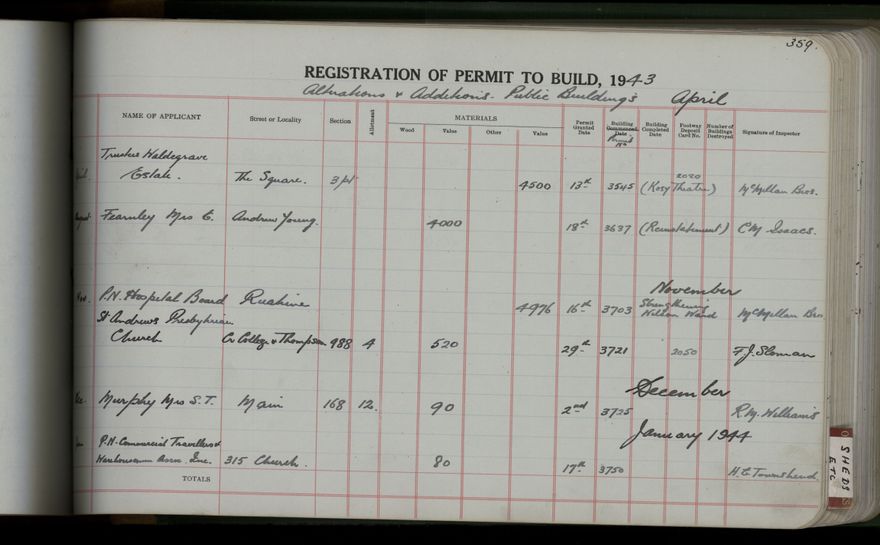 359.
REGISTRATION OF PERMIT TO BUILD, 1943
Alterations & Additions - Public Buildings April
NAME OF APPLICANT Street or Locality Section Allotment MATERIALS Permit Granted Date Building Commenced Date Permit No Building Completed Date Footway Deposit Card No. Number of Buildings Destroyed Signature of Inspector
Wood Value Other Value
Trustees Waldegrave
Estate. The Square. 3 pt 4500 13th 3545 (Kosy Theatre) 2020 McMillan Bros.
Fearnley Mrs E. Andrew Young. 4000 18th 3637 (Reinstatement) C M Isaacs.
November
P.N. Hospital Board Ruahine 4976 16th 3703 Strengthening McMillan Bros
Wilson Ward
St Andrews Presbyterian
Church Cr College & Thompson 988 4 520 29th 3721 2050 F. J. Sloman
December
Murphy Mrs S. T. Main 168 12. 90 2nd 3725 R. M. Williams
January 1944
P.N. Commercial Travellers &
Warehousemen Assn. Inc. 315 Church. 80 17th 3750 H. E. Townshend.
TOTALS
SHEDS
ETC